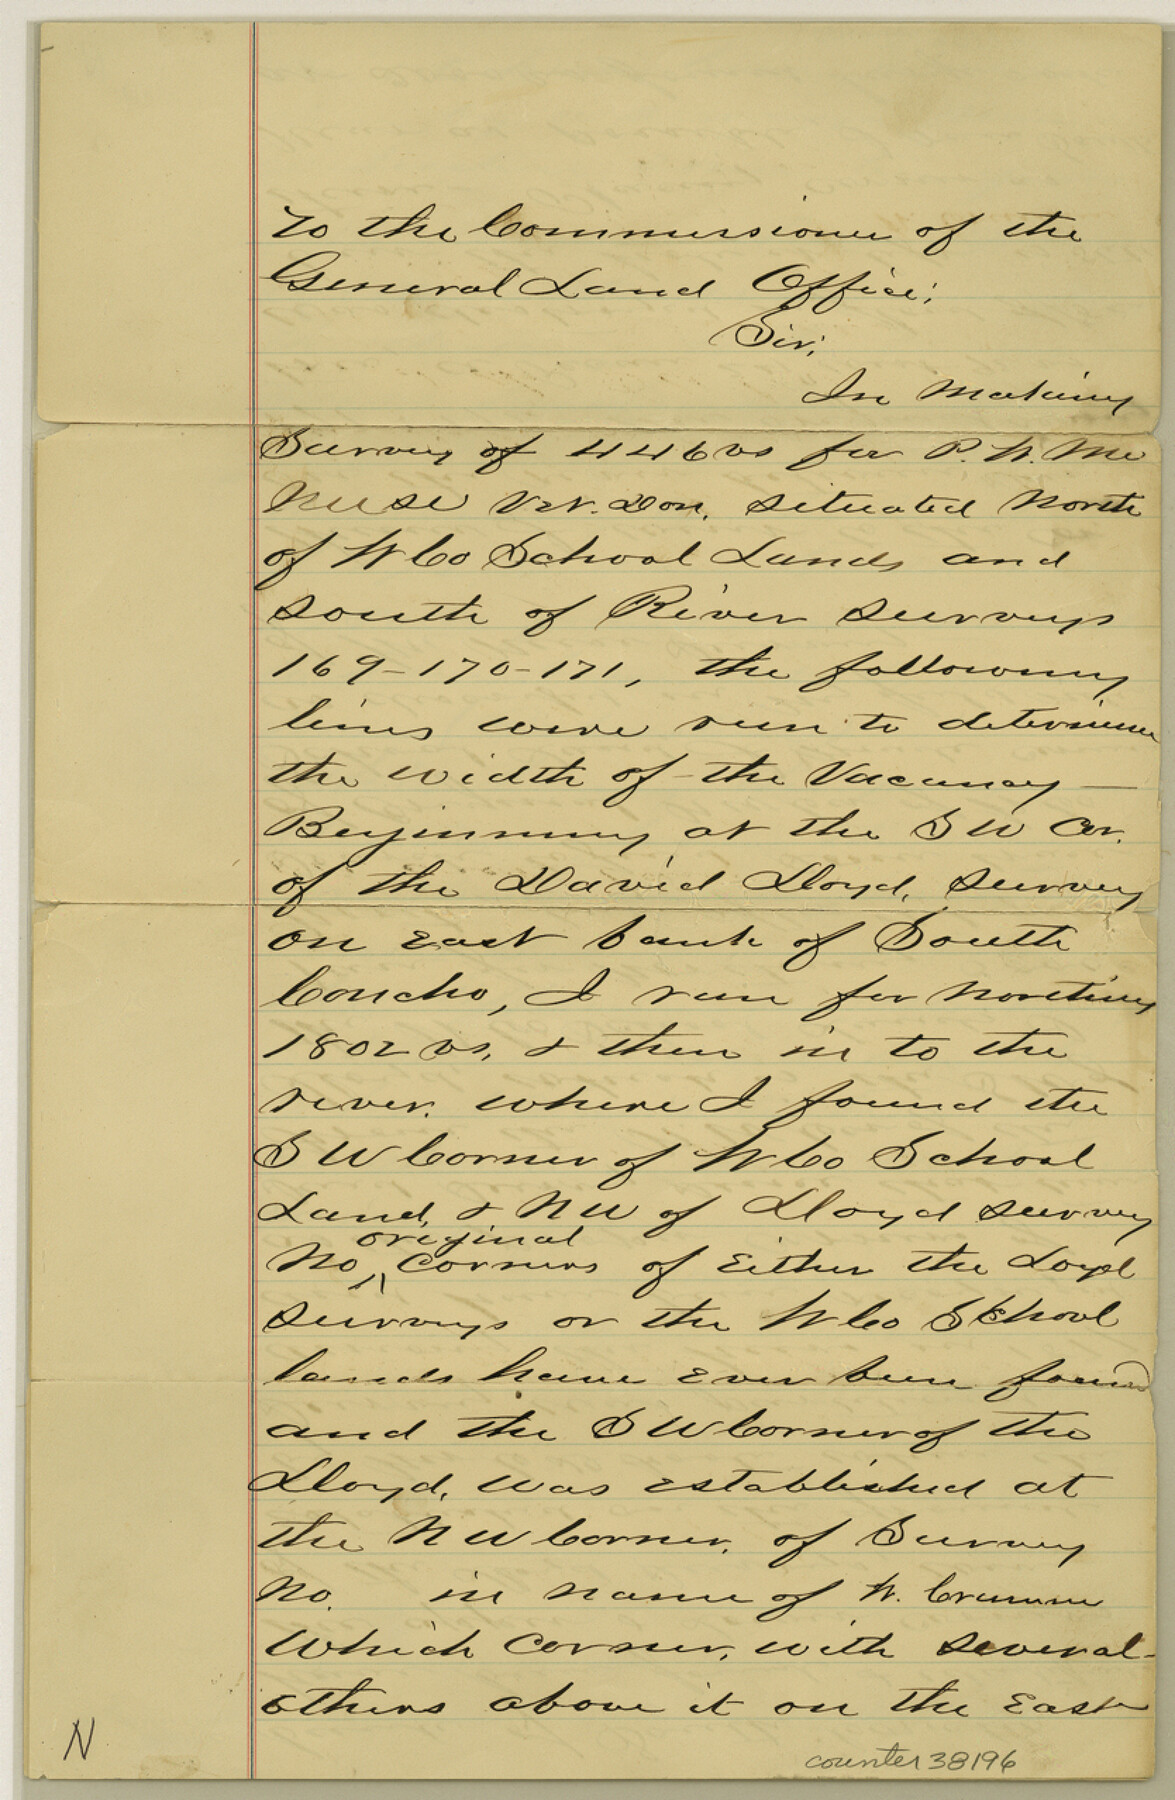 To the Commissioner of the
General Land Office;
Sir;
In Making
Survey of 446 vs for P. H. Mc
Nuse Vet. Don. situated North
of H Co School Lands and
South of River Surveys
169-170-171, the following
lines were run to determine
the width of the Vacancy —
Beginning at the S W Cor.
of the David Lloyd, survey
on East bank of South
Concho, I run for northing
1802 vs, & then in to the
river. where I found the
S W Corner of H Co School
Land, & N W of Lloyd survey
original
No, corners of Either the Loyd
surveys or the H Co School
lands have Ever been found
and the S W Corner of the
Lloyd, was Established at
the N W Corner, of Survey
No. in name of H.
Which Corner, with several
others above it on the East
N
counter 38196